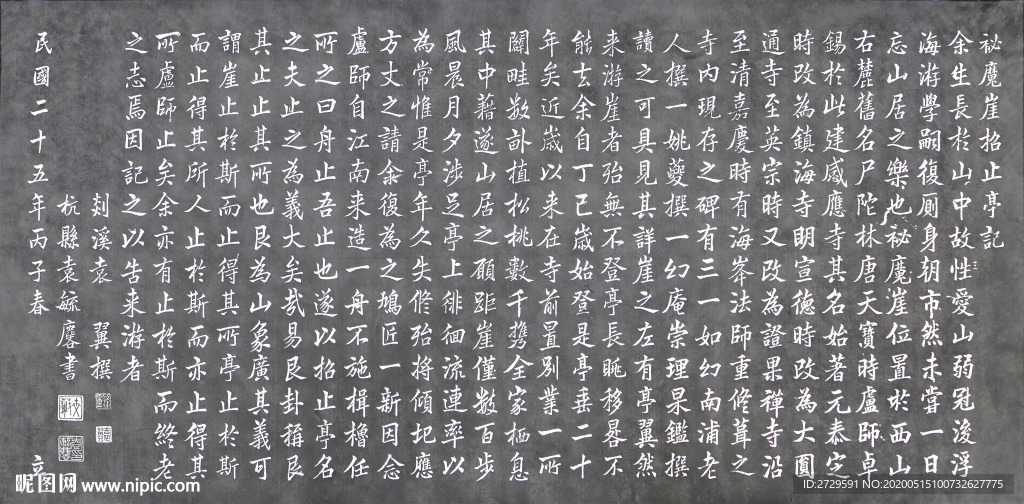 祕魔崖招止亭記
余生長於山中故性愛山弱冠後浮
海游學嗣復廁身朝市然未嘗一日
忘山居之樂也祕魔崖位置於西山
右麓舊名尸陀林唐天寶時盧師卓
錫於此建感應寺其名始著元泰定
時改為鎮海寺明宣德時改為大圓
通寺至英宗時又改為證果禪寺沿
至清嘉慶時有海峯法師重修葺之
寺內現存之碑有三一如幻南浦老
人撰一姚夔撰一幻庵崇理杲鑑撰
讀之可具見其詳崖之左有亭翼然
来游崖者殆無不登亭長眺移晷不
能去余自丁巳歲始登是亭垂二十
年矣近歲以来在寺前置別業一所
闢畦數畝植松桃數千携全家栖息
其中藉遂山居之願距崖僅數百步
風晨月夕涉足亭上徘徊流連率以
為常惟是亭年久失修殆將傾圮應
方丈之請余復為之鳩匠一新因念
盧師自江南来造一舟不施楫櫓任
所之曰舟止吾止也遂以招止亭名
之夫止之為義大矣哉易艮卦稱艮
其止止其所也艮為山象廣其義可
謂崖止於斯而止得其所亭止於斯
而止得其所人止於斯而亦止得其
所盧師止矣余亦有止於斯而終老
之志焉因記之以告来游者
剡溪袁 翼撰
杭縣袁毓麐書
民國二十五年丙子春
昵图网 www.nipic.com
ID:2729591 NO:20200515100732627775